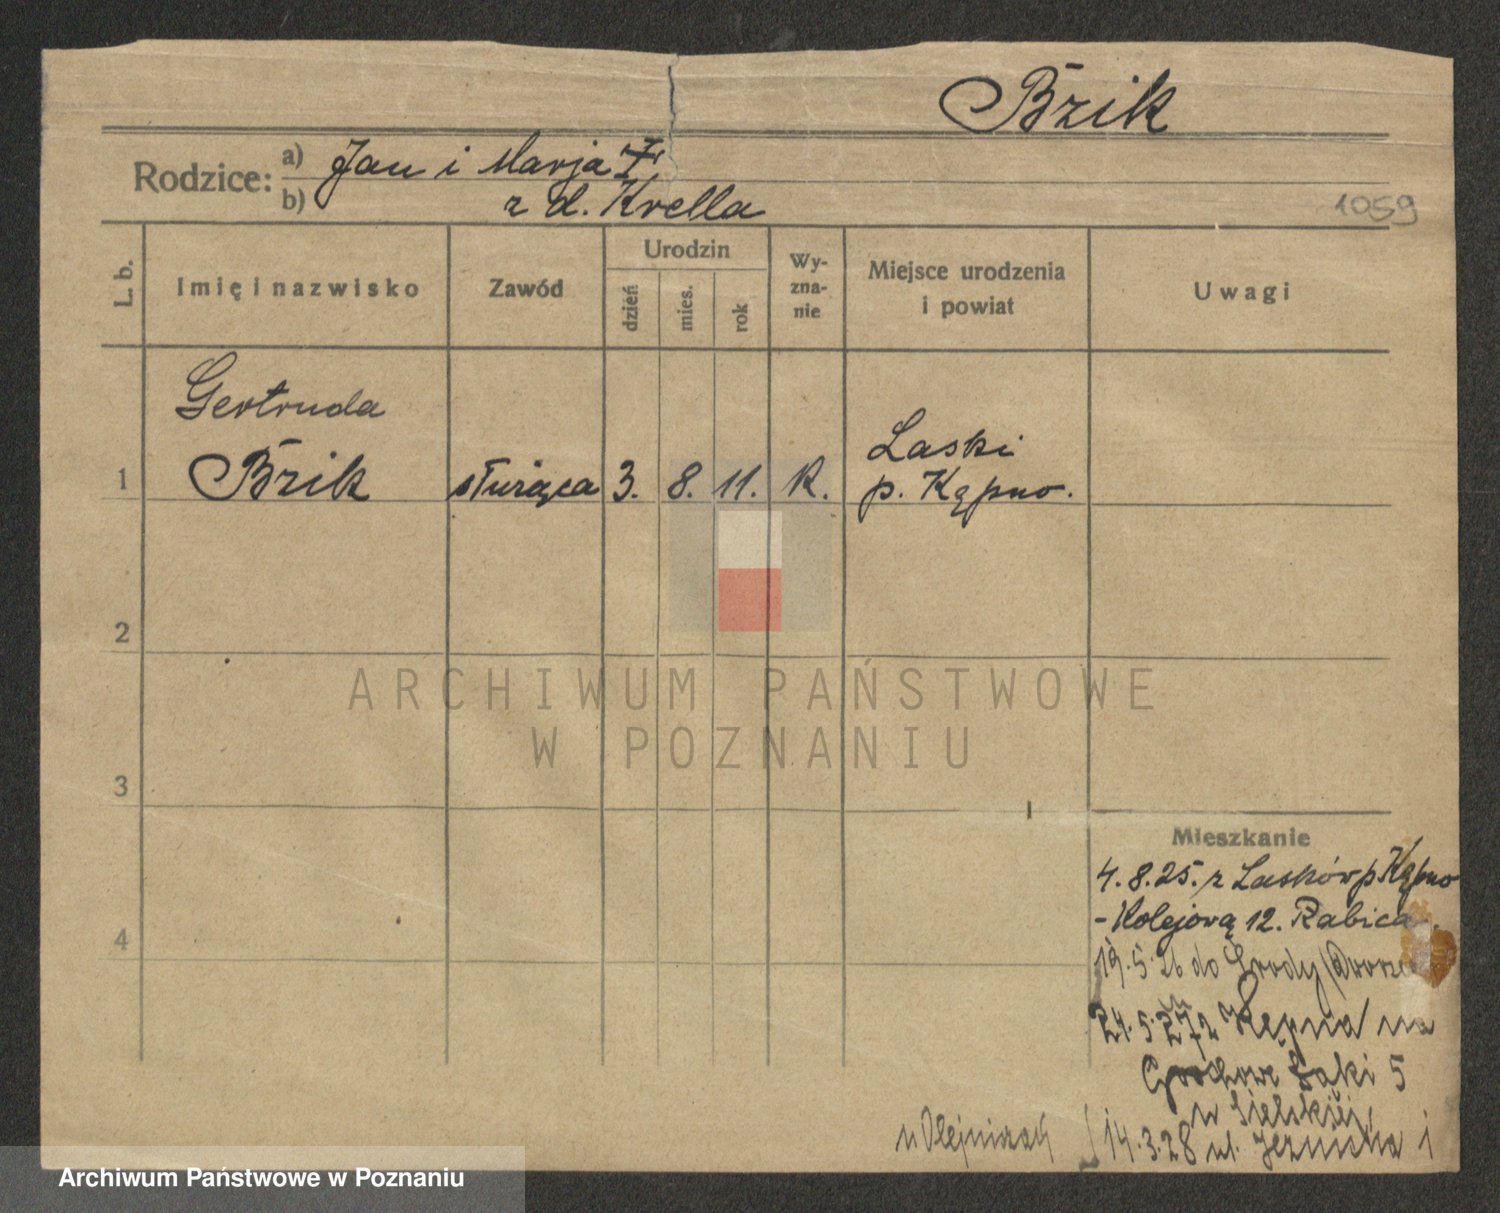 Bzik
Rodzice: a) Jan i Marja
b) z d. Krella
1059
L. b.
Imię i nazwisko
Zawód
Urodzin
dzień
mies.
rok
Wy-
zna-
nie
Miejsce urodzenia
i powiat
Uwagi
Gertruda
1 Bzik służąca 3. 8. 11. K.
Laski
p. Kępno.
2
3
4
Mieszkanie
4.8.25. z Lasków p. Kępno
- Kolejową 12. Rabica.
19.5.26 do Środy
24.5.27 z Kępna na
Grochowe Łąki 5
w Sielskiej
14.3.28 ul. Jezuicka 1
ARCHIWUM PAŃSTWOWE
W POZNANIU
Archiwum Państwowe w Poznaniu